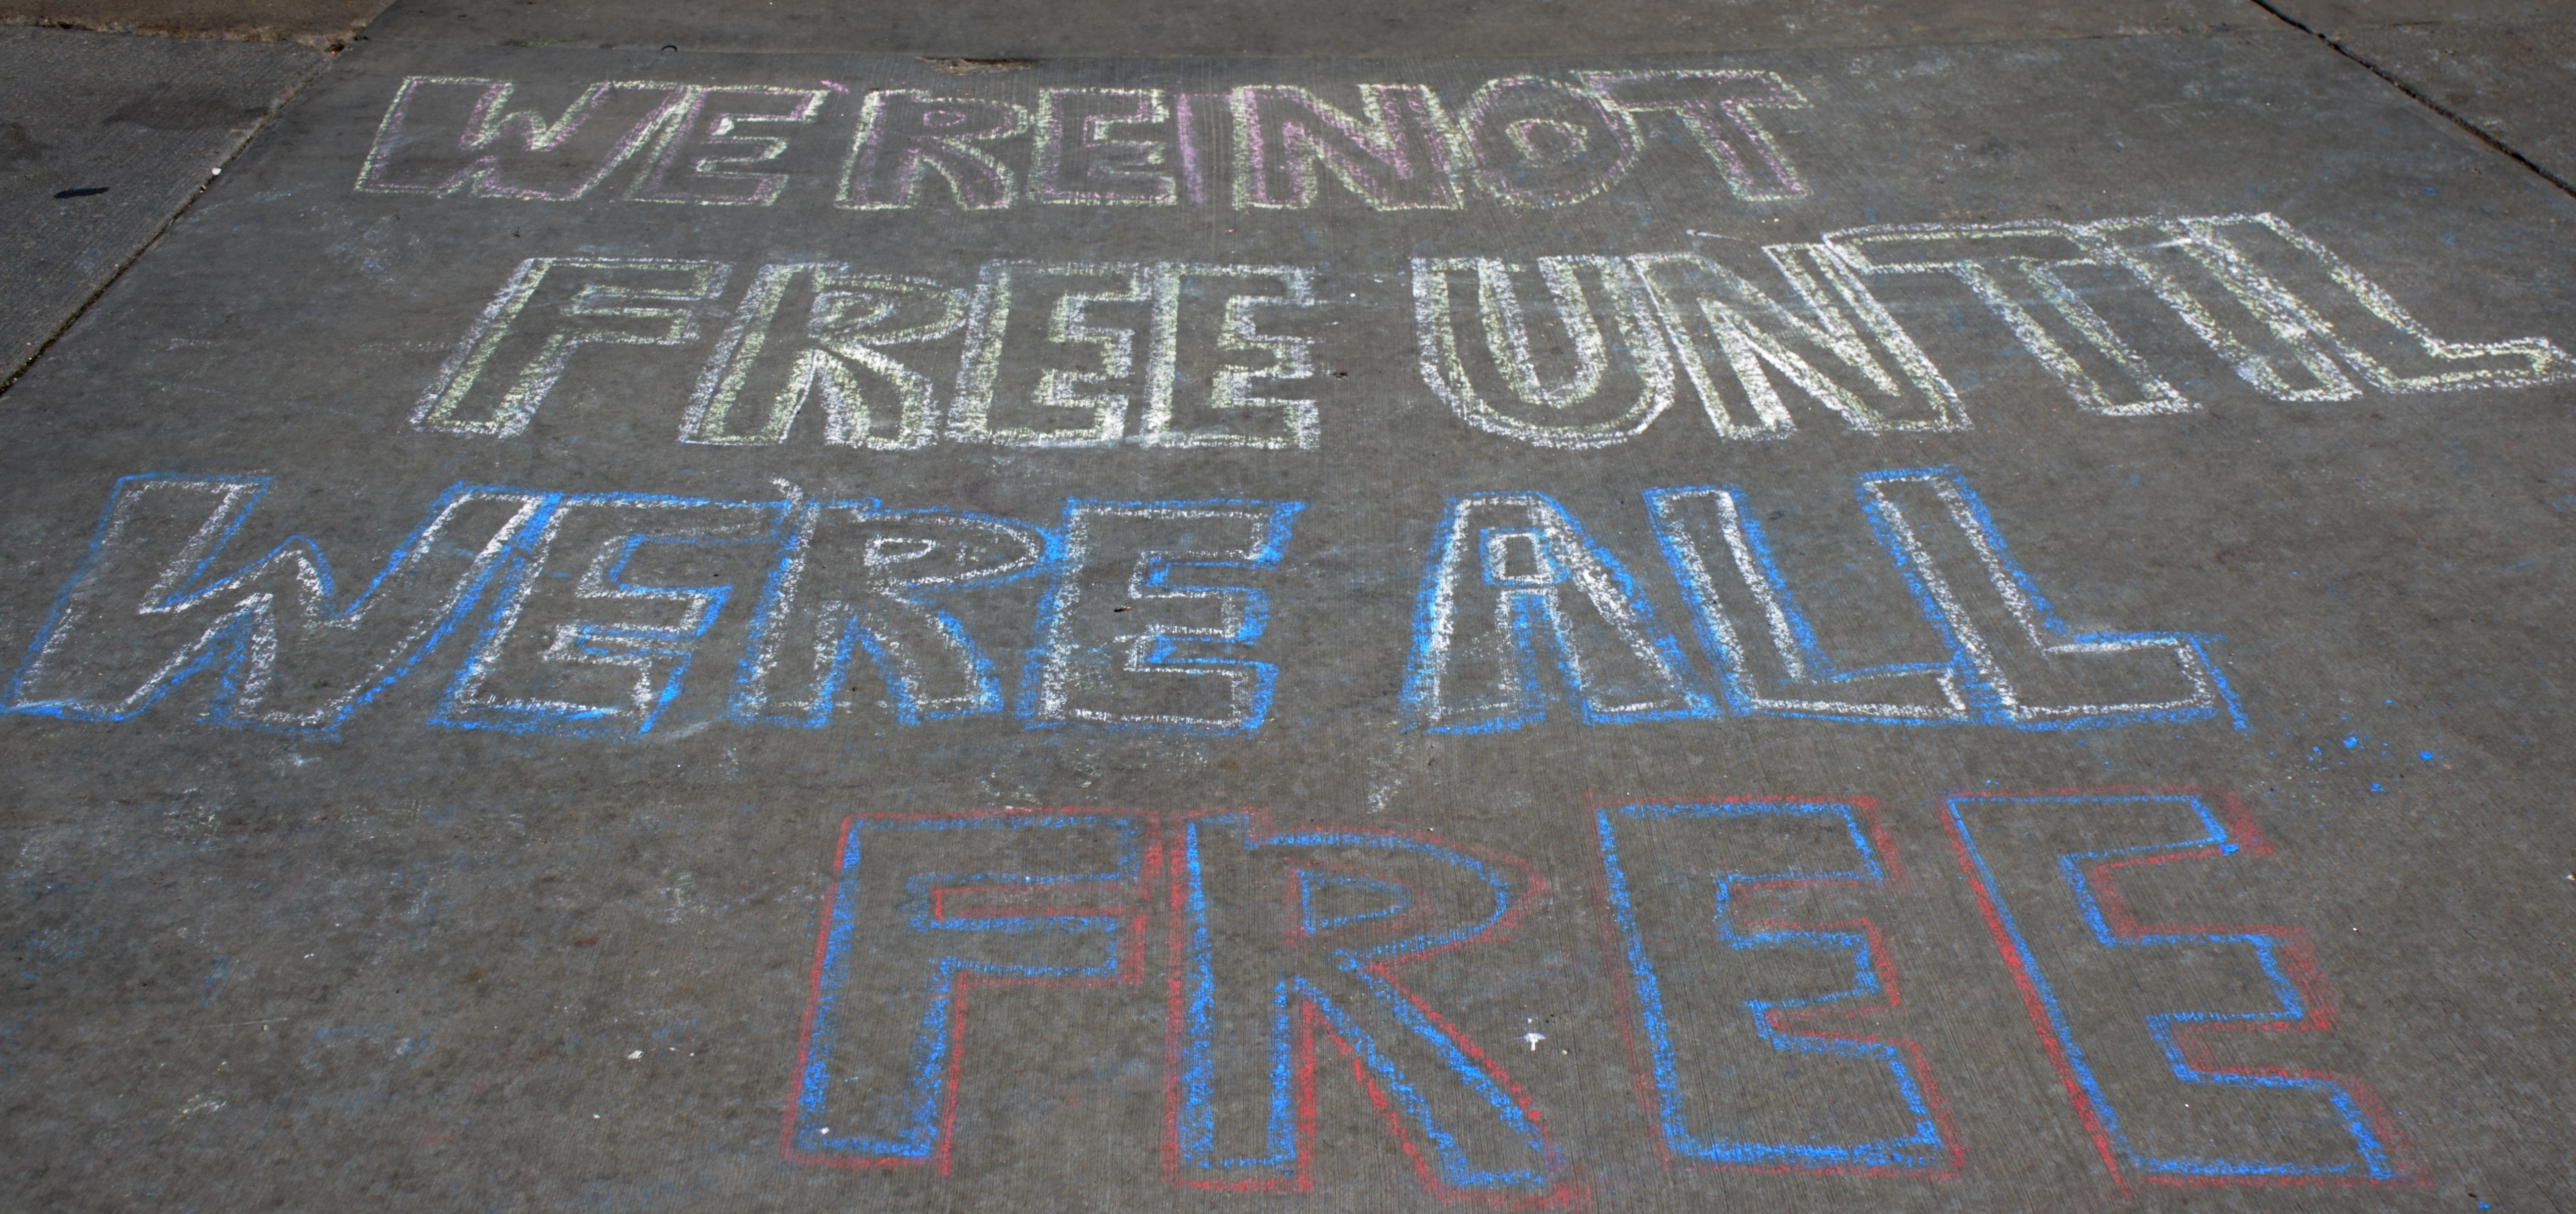 WE'RE NOT
FREE UNTIL
WE'RE ALL
FREE